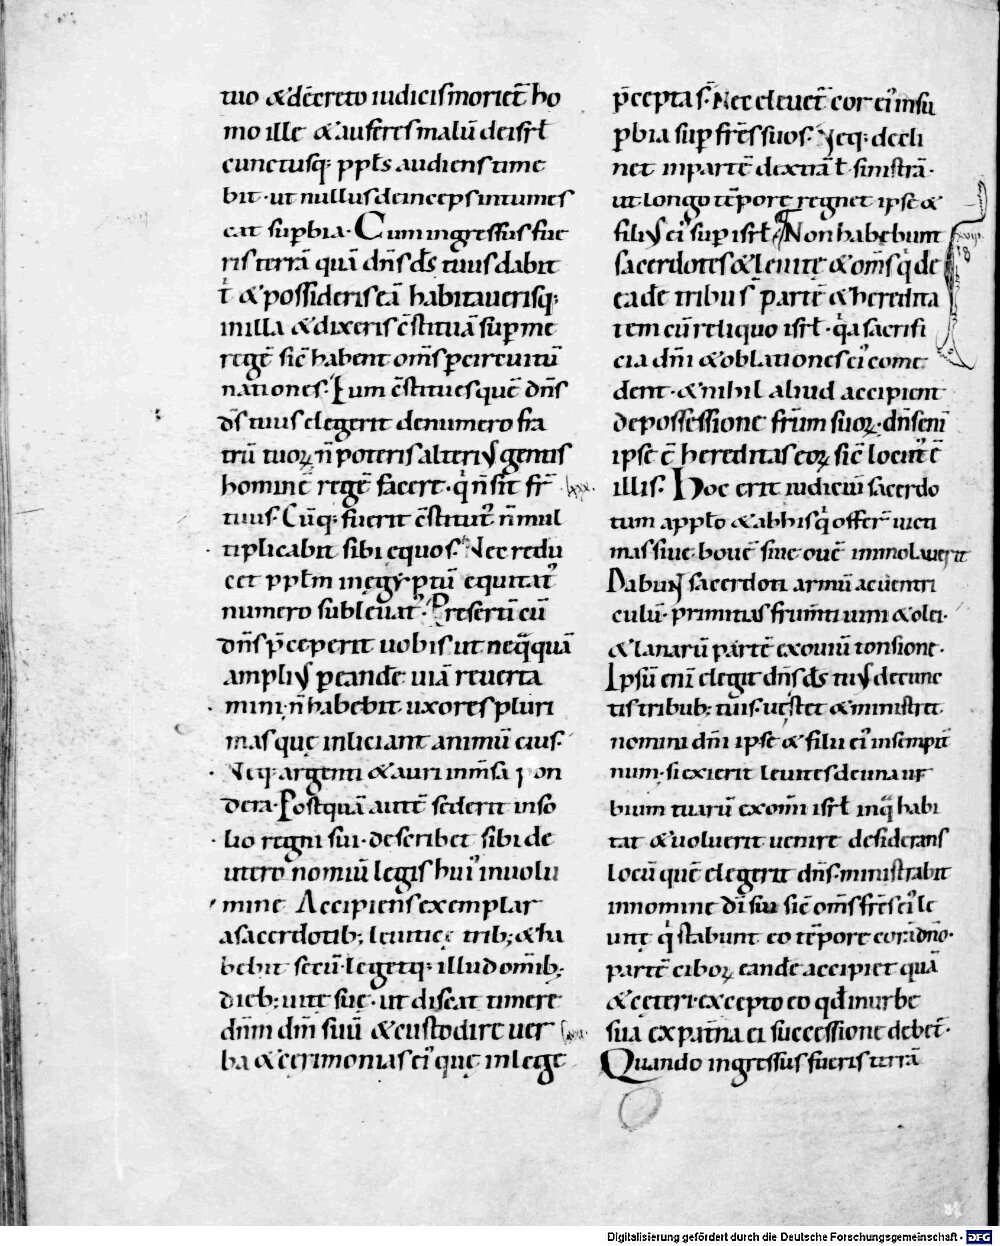 tuo & decreto iudicis moriet̄ ho
mo ille & auferes malū de isrl̄
cunctusq; ppl̄s audiens time
bit · ut nullus deinceps intumes
cat suꝑbia · Cum ingressus fue
ris terrā quā dn̄s ds̄ tuus dabit
t̄ & possideris eā habitauerisq;
in illa & dixeris c̄stituā suꝑ me
regē sic̄ habent om̄s ꝑ circuitū
nationes · Eum c̄stitues quē dn̄s
ds̄ tuus elegerit de numero fra
trū tuoꝝ n̄ poteris alteriꝰ gentis
hominē regē facere · q̄ n̄ sit fr̄
tuus · Cūq; fuerit c̄stitutꝰ n̄ mul
tiplicabit sibi equos · Nec redu
cet ppl̄m in ęgyptū equitatꝰ
numero subleuatꝰ · Presertī cū
dn̄s p̄ceperit uobis ut neq̄quā
ampliꝰ ꝑ eandē uiā reuerta
mini · n̄ habebit uxores pluri
mas quę inliciant animū eius ·
Neq; argenti & auri inm̄sa pon
dera · Postquā autē sederit in so
lio regni sui · describet sibi de
utero nomiū legis huiꝰ in uolu
mine Accipiens exemplar
a sacerdotib; leuiticę trib; & ha
bebit secū · legetq; illud omīb;
dieb; uitę suę · ut discat timere
dn̄m dm̄ suū & custodire uer
ba & cerimonias eiꝰ quę in lege
p̄cepta s̄ · Nec eleuet̄ cor eiꝰ in su
ꝑbia suꝑ fr̄es suos · Neq; decli
net in partē dextrā ł sinistrā ·
ut longo tēpore regnet ipse &
filiꝰ eiꝰ suꝑ isrl̄ · Non habebunt
sacerdotes & leuitę & om̄s q̄ de
eadē tribu s̄ partē & heredita
tem cū reliquo isrl̄ · q̄a sacrifi
cia dn̄i & oblationes eiꝰ come
dent · & nihil aliud accipient
de possessione fr̄um suoꝝ · dn̄s eni
ipse ē hereditas eoꝝ sic̄ locutꝰ ē
illis · Hoc erit iudiciū sacerdo
tum a ppl̄o & ab his q̄ offer̄ uicti
mas siue bouē siue ouē immolauerit
Dabunt sacerdoti armū ac uentri
culū · primitias frum̄ti uini & olei ·
& lanarū partē ex ouiū tonsione ·
Ipsū eni elegit dn̄s ds̄ tuꝰ de cunc
tis tribub; tuis · ut stet & ministret
nomini dn̄i ipse & filii eiꝰ in sempit̄
num · si exierit leuites de una ur
bium tuarū ex omni isrl̄ in q̄ habi
tat & uoluerit uenire desiderans
locū quē elegerit dn̄s · ministrabit
in nomine dī sui sic̄ om̄s fr̄es eiꝰ le
uitę q̄ stabunt eo tēpore corā dn̄o ·
partē ciboꝝ eandē accipiet quā
& cęteri · excepto eo qđ in urbe
sua ex pat̄na ei successione debet̄ ·
Quando ingressus fueris terrā
Digitalisierung gefördert durch die Deutsche Forschungsgemeinschaft - DFG